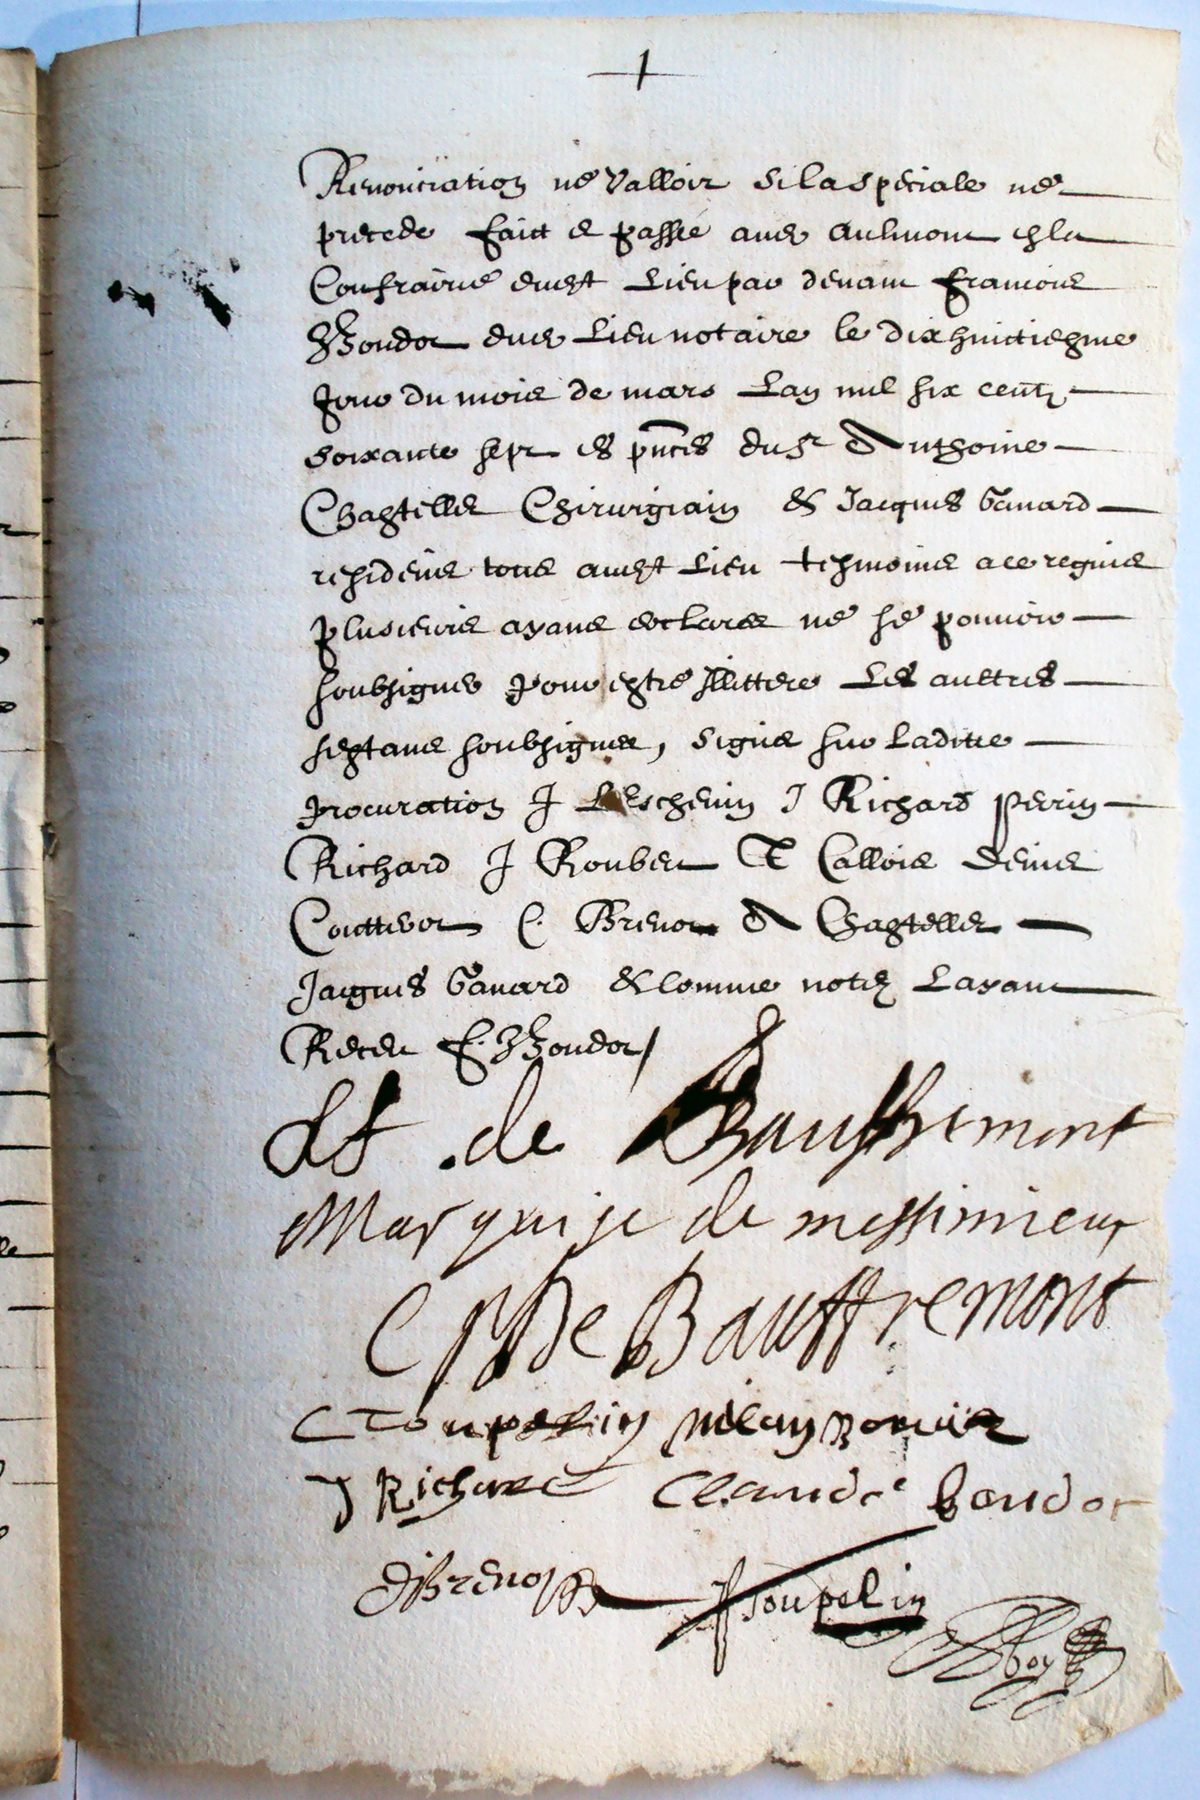 Renonciation ne valloir si la speciale ne
precede faict e passé aud Aulmont
Confrairie dudt Lieu par devant Francois
Boudot dud Lieu notaire le dixhuictiesme
Jour du mois de mars Lan mil six centz
soixante sept es pnces du sr Anthoine
Chastelles Chirurgiain & Jacques Gavard
residens tous audt Lieu tesmoins a ce requis
plusieurs ayans declarez ne se pouvoir
soubsigner pour estre Illittere Les aultres
sestans soubsignez, signe sur laditte
procuration J Leschenin J Richard perrin
Richard J Roubert Callois Denis
Couttevot C. Brenot A Chastelles
Jacques Gavard & comme notre Layant
Receu F. Boudot
de Bauffremont
Marquise de messimieux
C De Bauffremont
C Toupelin
J Richard Claude boudot
Brenot
J Toupelin
Boy